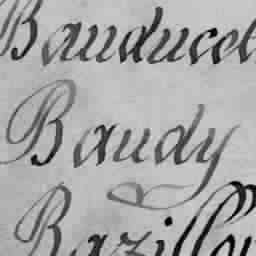 Bauducel
Baudy
Bazillou